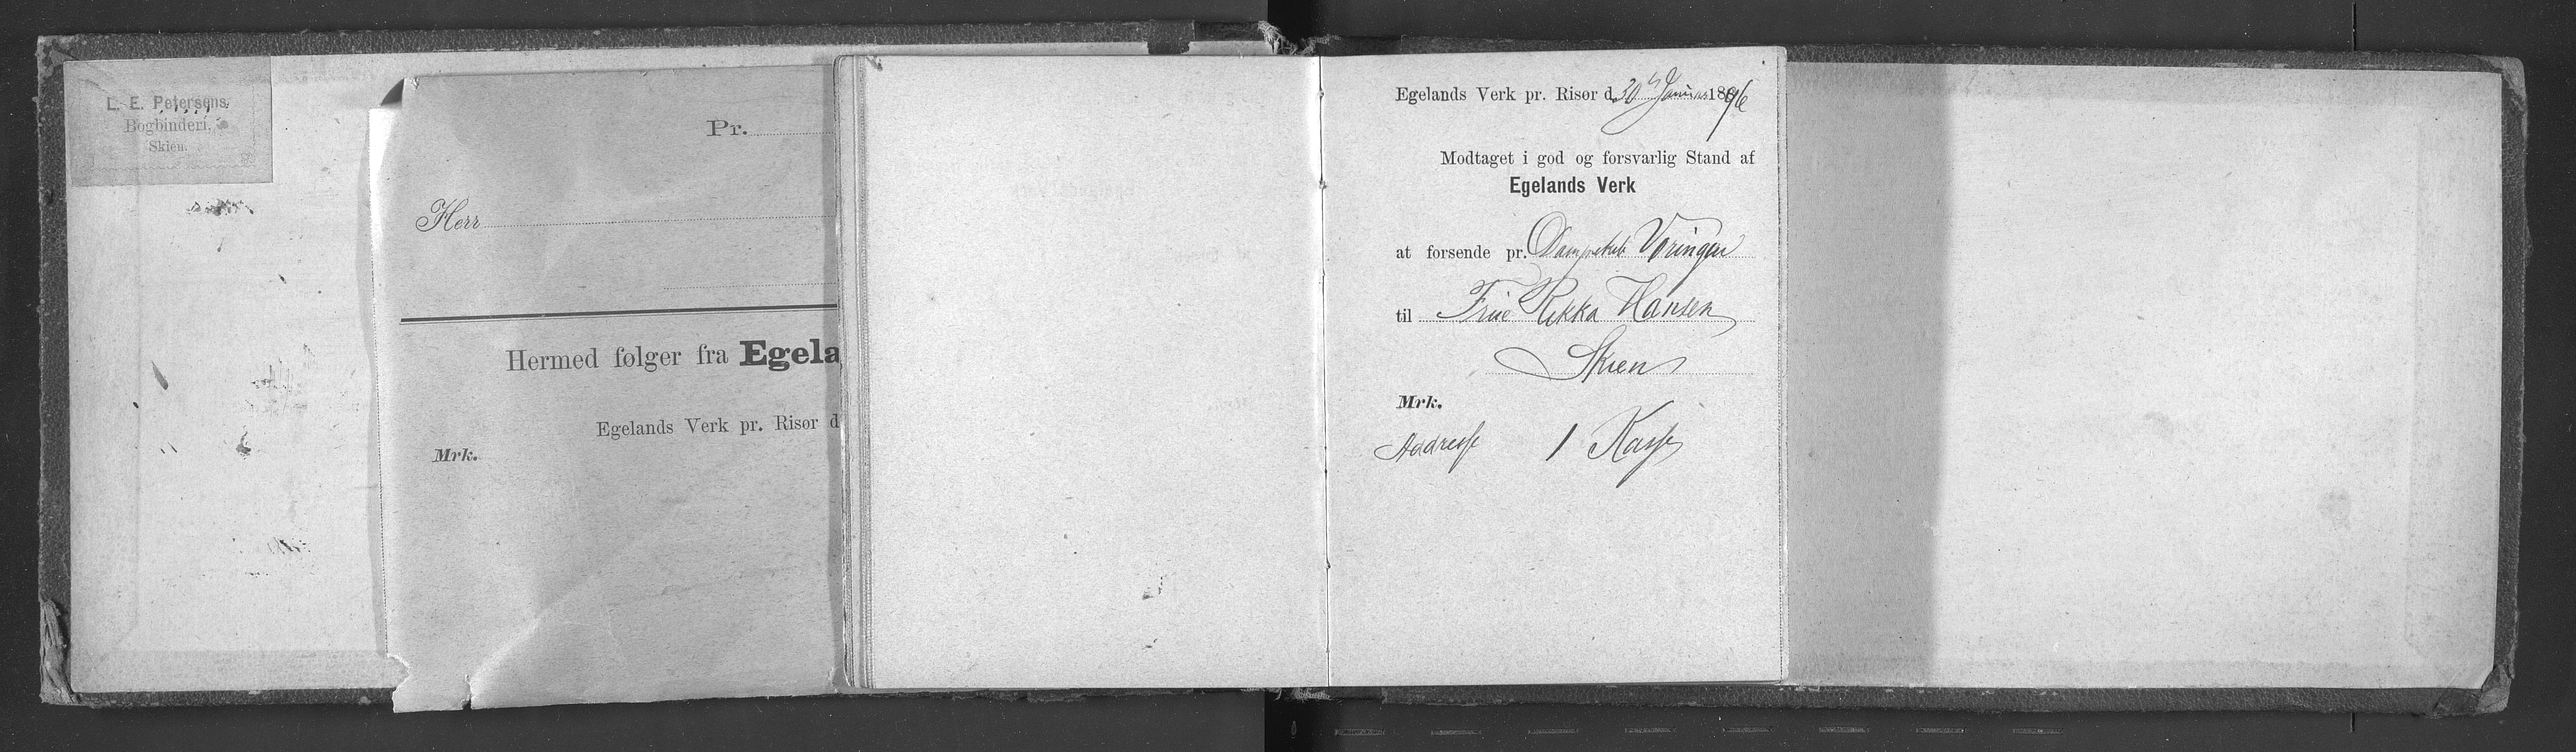 L. E. Petersens
Bogbinderi,
Skien.
Pr.
Herr
Hermed følger fra Egela
Egelands Verk pr. Risør d
Mrk.
Egelands Verk pr. Risør d. 30 Januar 1896
Modtaget i god og forsvarlig Stand af
Egelands Verk
at forsende pr. Dampskib Vøringen
til Frue Rikka Hansen
Skien
Mrk.
Addresse 1 Kasse